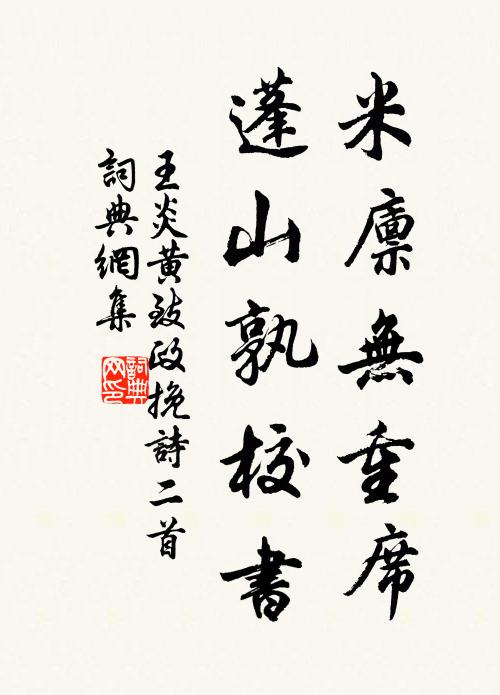 米廪無重席
蓬山孰校書
王炎黄致政挽詩二首
詞典網集
詞典網印